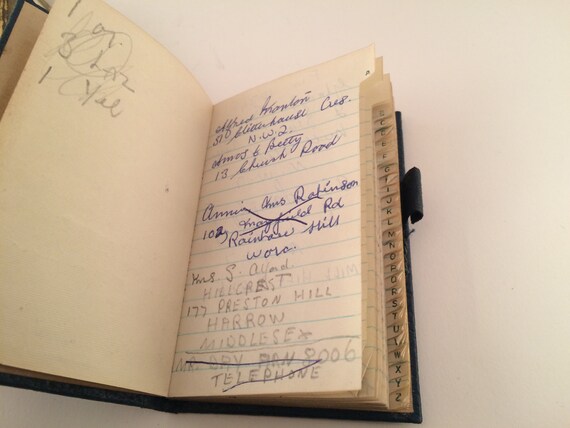 1
3
1
Alfred
510 Cres.
N.W.2.
Amos & Betty
13 Church Road
Annie Ams Robinson
102 Mayfield Rd
Rainbow Hill
Worc.
Mrs. G. Alford
HILLCREST
177 PRESTON HILL
HARROW
MIDDLESEX
MR. DAY 8006
TELEPHONE
C
D
E
F
G
H
I
J
K
L
M
N
O
P
Q
R
S
T
U
V
W
X
Y
Z